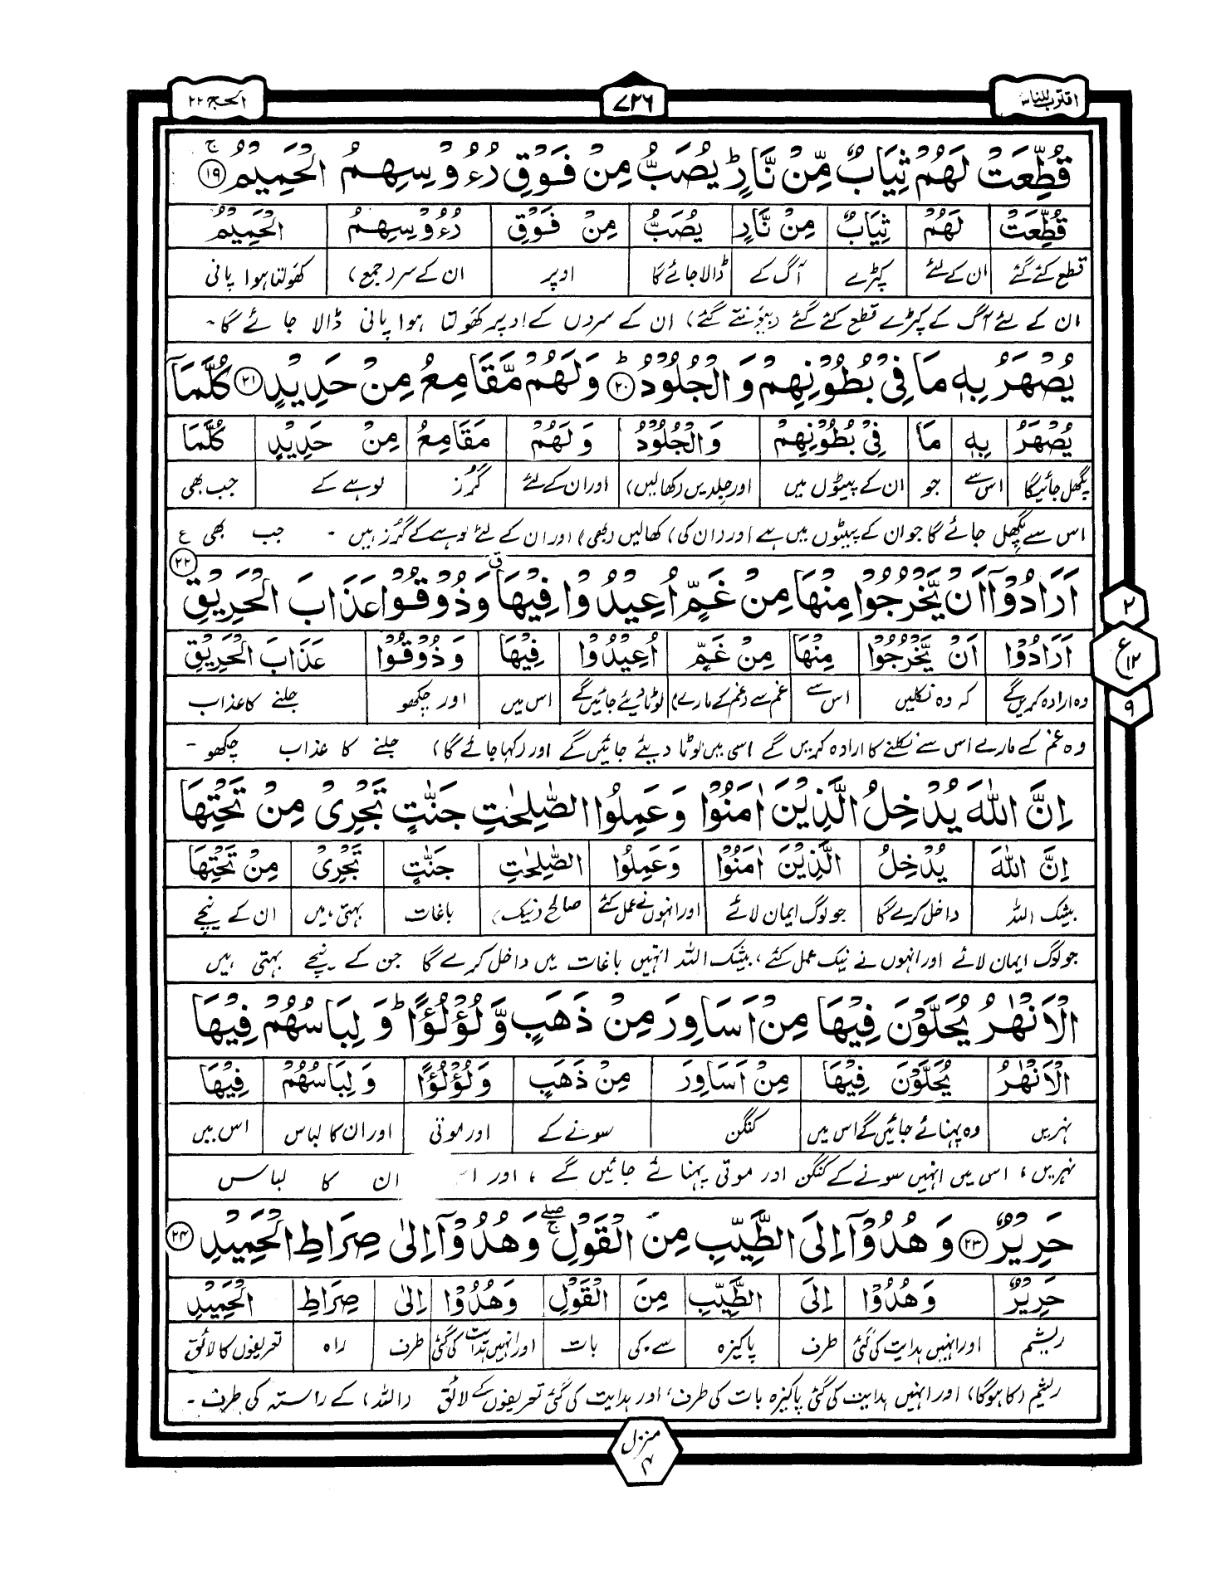 اقترب للناس
۷۲۶
الحج ۲۲
قُطِّعَتْ لَهُمْ ثِيَابٌ مِّنْ نَّارٍ ؕ يُصَبُّ مِنْ فَوْقِ رُءُوْسِهِمُ الْحَمِيْمُ ۚ ﴿۱۹﴾
قُطِّعَتْ لَهُمْ ثِيَابٌ مِنْ نَّارٍ يُصَبُّ مِنْ فَوْقِ رُءُوْسِهِمُ الْحَمِيْمُ
قطع کئے گئے ان کے لئے کپڑے آگ کے ڈالا جائے گا اوپر ان کے سر (جمع) کھولتا ہوا پانی
ان کے لئے آگ کے کپڑے قطع کئے گئے (بیونتے گئے) ان کے سروں کے اوپر کھولتا ہوا پانی ڈالا جائے گا۔
يُصْهَرُ بِهٖ مَا فِيْ بُطُوْنِهِمْ وَالْجُلُوْدُ ؕ ﴿۲۰﴾ وَلَهُمْ مَّقَامِعُ مِنْ حَدِيْدٍ ﴿۲۱﴾ كُلَّمَآ
يُصْهَرُ بِهٖ مَا فِيْ بُطُوْنِهِمْ وَالْجُلُوْدُ وَلَهُمْ مَقَامِعُ مِنْ حَدِيْدٍ كُلَّمَا
پگھل جائیگا اس سے جو ان کے پیٹوں میں اور جلدیں (کھالیں) اور ان کے لئے گرز لوہے کے جب بھی
اس سے پگھل جائے گا جو ان کے پیٹوں میں ہے اور (ان کی) کھالیں (بھی) اور ان کے لئے لوہے کے گرز ہیں - جب بھی ع
اَرَادُوْٓا اَنْ يَّخْرُجُوْا مِنْهَا مِنْ غَمٍّ اُعِيْدُوْا فِيْهَا ق وَذُوْقُوْا عَذَابَ الْحَرِيْقِ ﴿۲۲﴾
اَرَادُوْا اَنْ يَّخْرُجُوْا مِنْهَا مِنْ غَمٍّ اُعِيْدُوْا فِيْهَا وَذُوْقُوْا عَذَابَ الْحَرِيْقِ
وہ ارادہ کریں گے کہ وہ نکلیں اس سے غم سے (غم کے مارے) لوٹا دیئے جائیں گے اس میں اور چکھو جلنے کا عذاب
وہ غم کے مارے اس سے نکلنے کا ارادہ کریں گے اسی میں لوٹا دیئے جائیں گے اور (کہا جائے گا) جلنے کا عذاب چکھو -
۲
ع ۱۲
۹
اِنَّ اللّٰهَ يُدْخِلُ الَّذِيْنَ اٰمَنُوْا وَعَمِلُوا الصّٰلِحٰتِ جَنّٰتٍ تَجْرِيْ مِنْ تَحْتِهَا
اِنَّ اللّٰهَ يُدْخِلُ الَّذِيْنَ اٰمَنُوْا وَعَمِلُوا الصّٰلِحٰتِ جَنّٰتٍ تَجْرِيْ مِنْ تَحْتِهَا
بیشک اللہ داخل کرے گا جو لوگ ایمان لائے اور انہوں نے عمل کئے صالح (نیک) باغات بہتی ہیں ان کے نیچے
جو لوگ ایمان لائے اور انہوں نے نیک عمل کئے، بیشک اللہ انہیں باغات میں داخل کرے گا جن کے نیچے بہتی ہیں
الْاَنْهٰرُ يُحَلَّوْنَ فِيْهَا مِنْ اَسَاوِرَ مِنْ ذَهَبٍ وَّلُؤْلُؤًا ؕ وَلِبَاسُهُمْ فِيْهَا
الْاَنْهٰرُ يُحَلَّوْنَ فِيْهَا مِنْ اَسَاوِرَ مِنْ ذَهَبٍ وَلُؤْلُؤًا وَلِبَاسُهُمْ فِيْهَا
نہریں وہ پہنائے جائیں گے اس میں کنگن سونے کے اور موتی اور ان کا لباس اس میں
نہریں، اس میں انہیں سونے کے کنگن اور موتی پہنائے جائیں گے، اور ان کا لباس
حَرِيْرٌ ﴿۲۳﴾ وَهُدُوْٓا اِلَى الطَّيِّبِ مِنَ الْقَوْلِ ۖۚ وَهُدُوْٓا اِلٰى صِرَاطِ الْحَمِيْدِ ﴿۲۴﴾
حَرِيْرٌ وَهُدُوْا اِلَى الطَّيِّبِ مِنَ الْقَوْلِ وَهُدُوْا اِلٰى صِرَاطِ الْحَمِيْدِ
ریشم اور انہیں ہدایت کی گئی طرف پاکیزہ سے ۔ کی بات اور انہیں ہدایت کی گئی طرف راہ تعریفوں کا لائق
ریشم (کا ہوگا) اور انہیں ہدایت کی گئی پاکیزہ بات کی طرف، اور ہدایت کی گئی تعریفوں کے لائق (اللہ) کے راستہ کی طرف -
منزل ۴